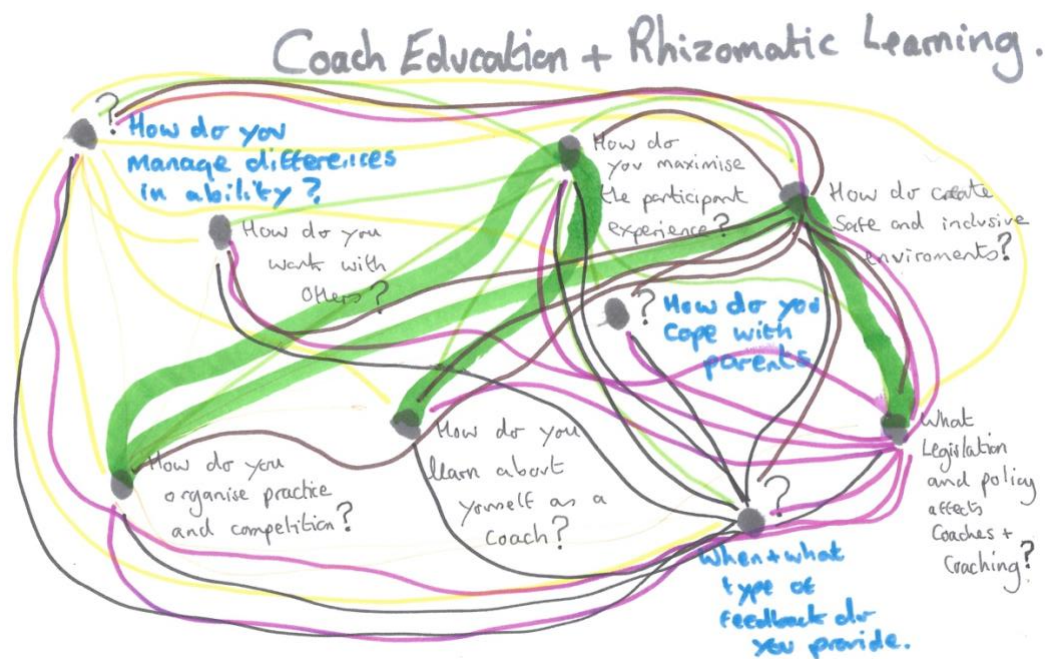 Coach Education + Rhizomatic Learning.
? How do you
manage differences
in ability?
How do you
work with
others?
How do
you maximise
the participant
experience?
How do create
safe and inclusive
enviroments?
? How do you
cope with
parents
How do you
organise practice
and competition?
How do you
learn about
yourself as a
coach?
?
When + what
type of
feedback do
you provide.
What
legislation
and policy
affects
coaches +
coaching?